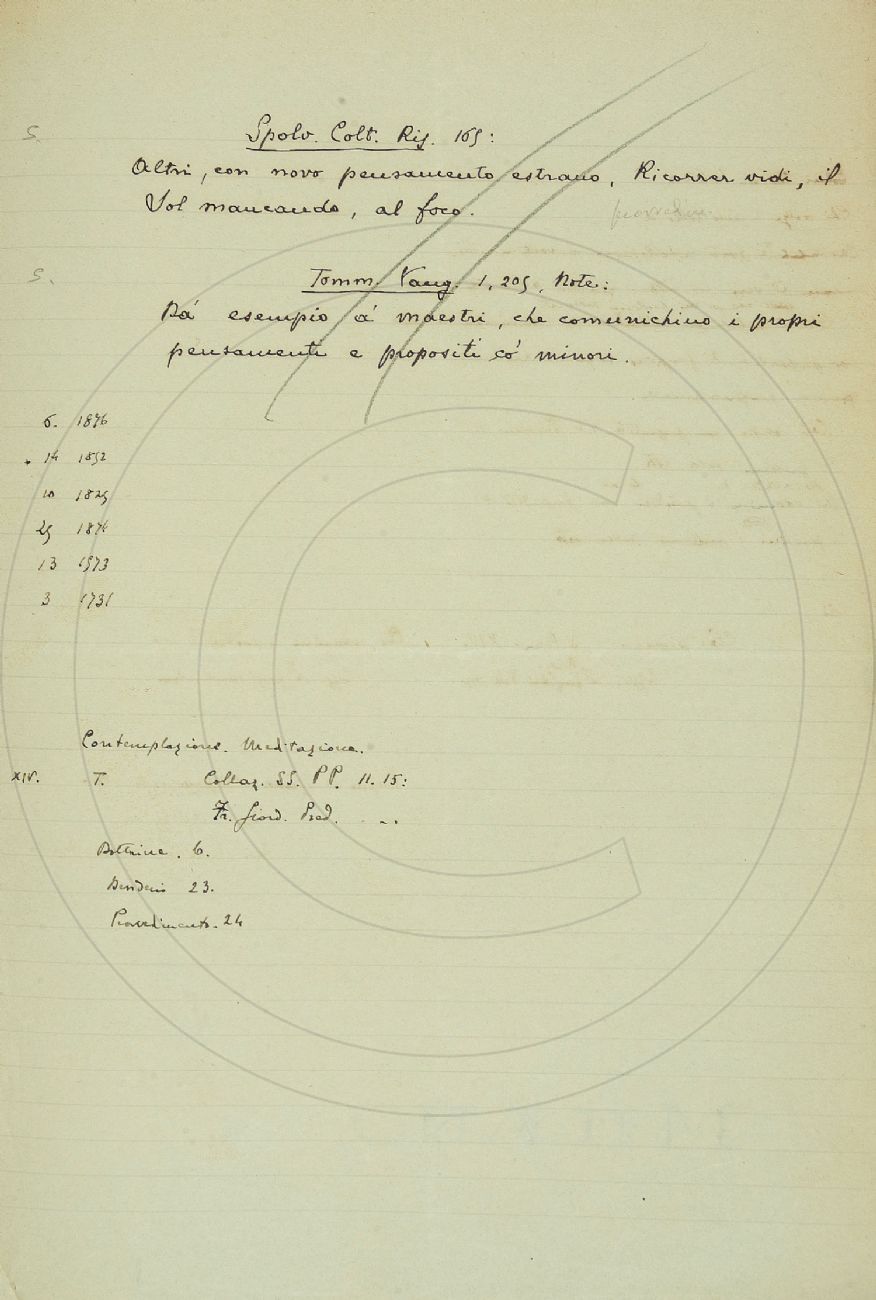 S. Spolv. Colt. Ris. 165:
Altri, con novo pensamento estrano, Ricorrer vidi, il
Sol mancando, al foco.
S. Tomm. Vang. 1, 205, Note:
Dà esempio a' maestri, che comunichino i propri
pensamenti e propositi co' minori.
6. 1876
14 1852
10 1825
25 1876
13 1573
3 1731
Contemplazione. Meditazione.
XIV. T. Collaz. SS. PP. 11. 15:
Fr. Giord. Pred.
Dottrina. 6.
Desiderio 23.
Provvedimento. 24